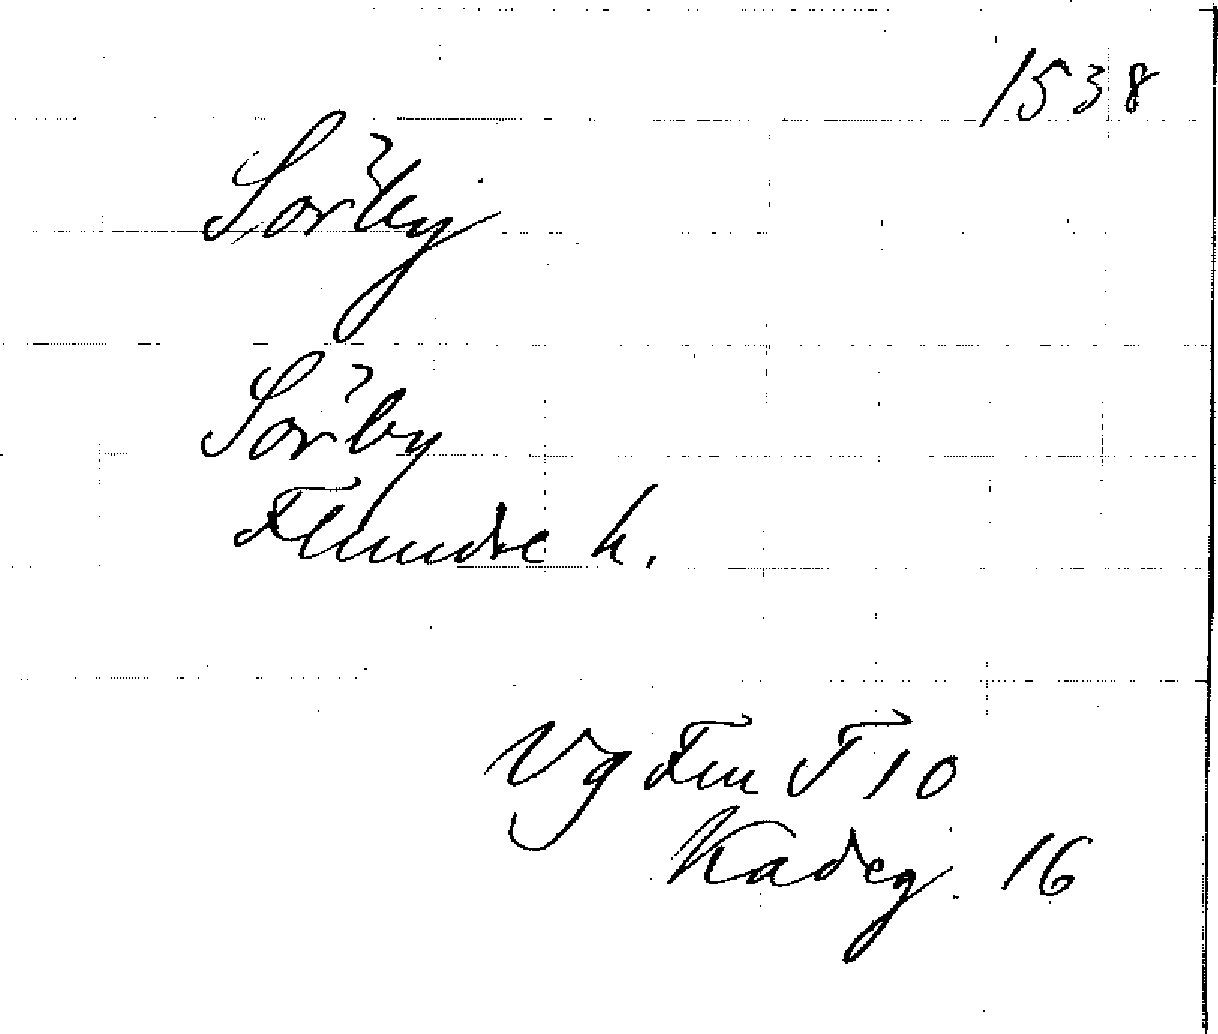 1538
Sörby
Sörby
Flundre h.
Vg Flu T 10
Kadeg. 16